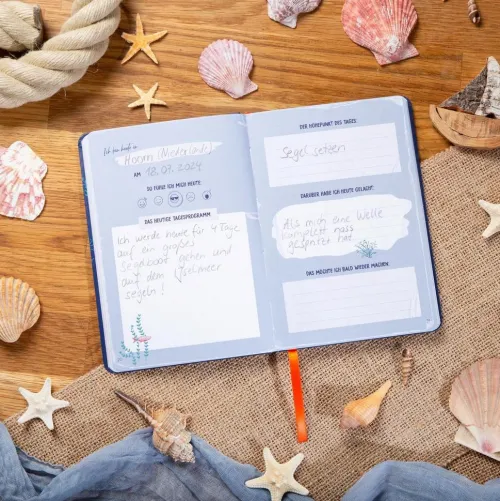 Ich bin heute in
Hoorn (Niederlande)
AM 18.07.2024
SO FÜHLE ICH MICH HEUTE:
DAS HEUTIGE TAGESPROGRAMM:
Ich werde heute für 4 Tage
auf ein großes
Segelboot gehen und
auf dem Ijselmeer
segeln!
DER HÖHEPUNKT DES TAGES:
Segel setzen
DARÜBER HABE ICH HEUTE GELACHT:
Als mich eine Welle
komplett nass
gespritzt hat
DAS MÖCHTE ICH BALD WIEDER MACHEN: